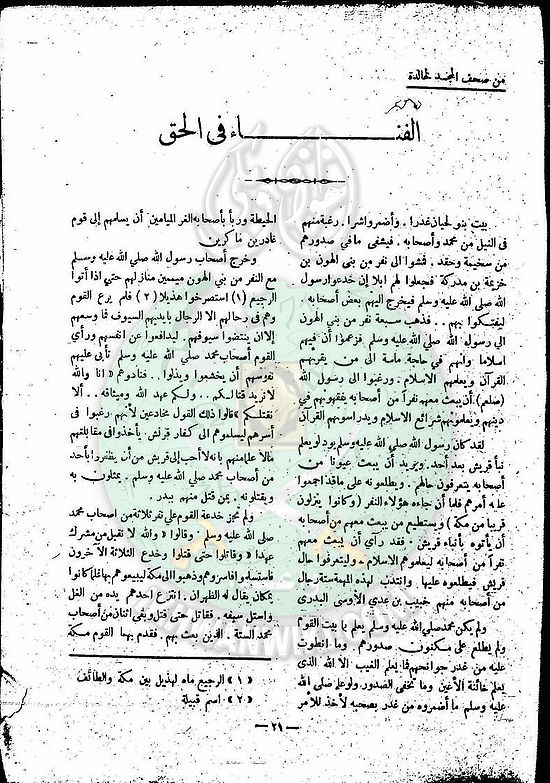 من صحف المجد الخالدة
الفنـــاء فى الحق
بيت بنو لحيان غدرا . وأضمروا شرا . رغبة منهم
فى النيل من محمد وأصحابه . فيشفى مافى صدورهم
من سخيمة وحقد . فمشوا الى نفر من بنى الهون بن
خزيمة بن مدركة . فجعلوا لهم ابلا إن خدعوا رسول
الله صلى الله عليه وسلم فيخرج اليهم بعض أصحابه .
ليفتكوا بهم . . فذهب سبعة نفر من بنى الهون
الى رسول الله صلى الله عليه وسلم فزعموا أن فيهم
اسلاما وانهم فى حاجة ماسة الى من يقرئهم
القرآن ويعلمهم الاسلام . ورغبوا الى رسول الله
(صلعم) أن يبعث معهم نفرا من أصحابه يفقهوهم فى
دينهم ويعلموهم شرائع الاسلام ويدارسونهم القرآن
لقد كان رسول الله صلى الله عليه وسلم يود لو يعلم
نبأ قريش بعد أحد . ويريد أن يبث عيونا من
أصحابه يتعرفون حالهم . ويطلعونه على ما قد اجمعوا
عليه أمرهم فلما أن جاءه هؤلاء النفر (وكانوا ينزلون
قريبا من مكة) ويستطيع من يبعث معهم من أصحابه
أن يأتوه بأنباء قريش . فقد رأى أن يبعث معهم
نفرا من أصحابه ليعلموهم الاسلام . وليتعرفوا حال
قريش فيطلعوه عليها . وانتدب لهذه المهمة ستة رجال
من أصحابه منهم خبيب بن عدى الأوسى البدرى
ولم يكن محمد صلى الله عليه وسلم يعلم ما بيت القوم
ولم يطلع على مكنون صدورهم وما انطوت
عليه من غدر جوانحهم فما يعلم الغيب الا الله الذى
يعلم خائنة الأعين وما تخفى الصدور . ولو علم صلى الله
عليه وسلم ما أضمروه من غدر بصحبه لأخذ للأمر
الحيطة وربأ بأصحابه الغر الميامين أن يسلمهم إلى قوم
غادرين ماكرين
وخرج أصحاب رسول الله صلى الله عليه وسلم
مع النفر من بنى الهون ميممين منازلهم حتى اذا أتوا
الرجيع (١) استصرخوا هذيلا (٢) فلم يرع القوم
وهم فى رحالهم الا الرجال بايديهم السيوف فما وسعهم
إلا ان ينتضوا سيوفهم . ليدافعوا عن انفسهم ورأى
القوم أصحاب محمد صلى الله عليه وسلم تأبى عليهم
نفوسهم أن يخشعوا ويذلوا . . فنادوهم « انا والله
لا نريد قتالكم . . ولكم عهد الله وميثاقه . . ألا
نقتلكم » قالوا ذلك القول مخادعين لأنهم رغبوا فى
أسرهم ليسلموهم الى كفار قريش . يأخذوا فى مقابلتهم
مالا علما منهم بانه لا أحب إلى قريش من أن يظفروا بأحد
من أصحاب محمد صلى الله عليه وسلم . يمثلون به
ويقتلونه . بمن قتل منهم ببدر .
ولم تجز خدعة القوم على نفر ثلاثة من اصحاب محمد
صلى الله عليه وسلم . وقالوا « والله لا نقبل من مشرك
عهدا » وقاتلوا حتى قتلوا وخدع الثلاثة الآخرون
فاستسلموا فأسروهم وذهبوا الى مكة ليبيعوهم بها فلما كانوا
بمكان يقال له الظهران . انتزع احدهم يده من الغل
واستل سيفه . فقاتل حتى قتل وبقى اثنان من أصحاب
محمد الستة . الذين بعث بهم . فقدم بهما القوم مكة
«١» الرجيع ماء لهذيل بين مكة والطائف
«٢» اسم قبيلة
— ٢١ —